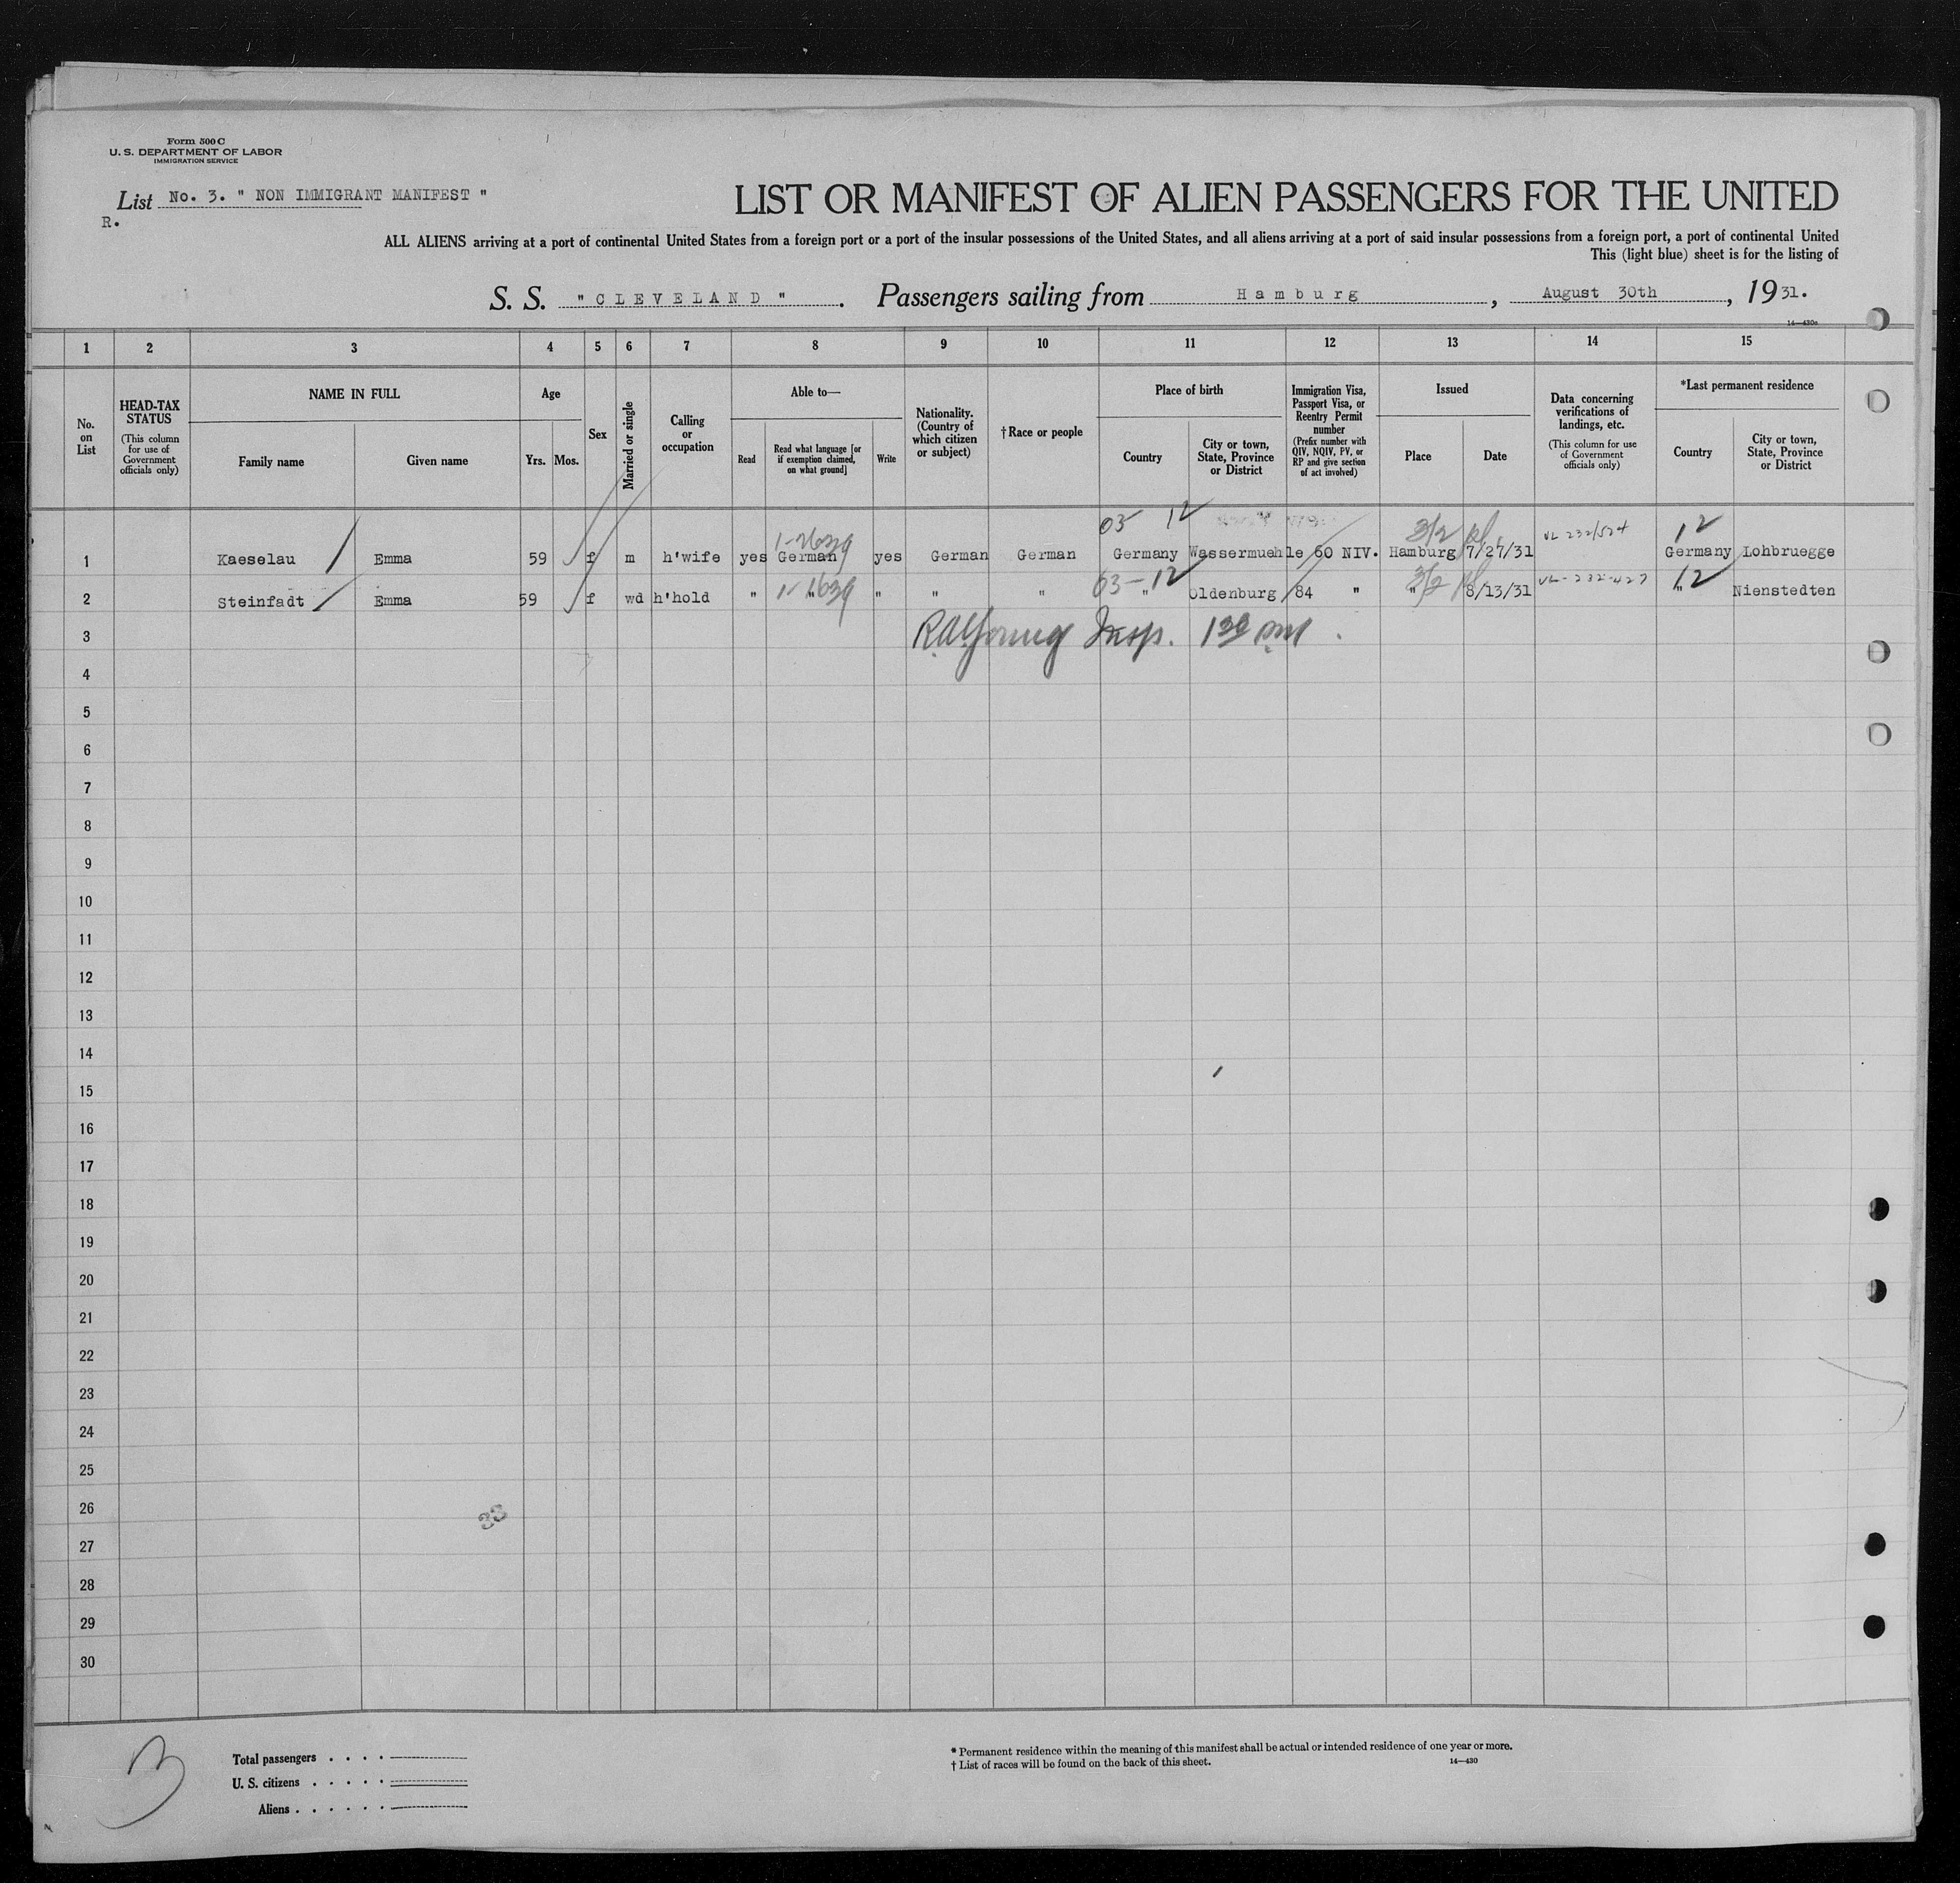 Form 500 C
U. S. DEPARTMENT OF LABOR
IMMIGRATION SERVICE
List No. 3. " NON IMMIGRANT MANIFEST "
R.
LIST OR MANIFEST OF ALIEN PASSENGERS FOR THE UNITED
ALL ALIENS arriving at a port of continental United States from a foreign port or a port of the insular possessions of the United States, and all aliens arriving at a port of said insular possessions from a foreign port, a port of continental United
This (light blue) sheet is for the listing of
S. S. " CLEVELAND " . Passengers sailing from Hamburg , August 30th , 1931.
14—430a
1 2 3 4 5 6 7 8 9 10 11 12 13 14 15
No. on List
HEAD-TAX STATUS
(This column for use of Government officials only)
NAME IN FULL
Family name
Given name
Age
Yrs. Mos.
Sex
Married or single
Calling or occupation
Able to—
Read
Read what language [or if exemption claimed, on what ground]
Write
Nationality. (Country of which citizen or subject)
† Race or people
Place of birth
Country
City or town, State, Province or District
Immigration Visa, Passport Visa, or Reentry Permit number
(Prefix number with QIV, NQIV, PV, or RP and give section of act involved)
Issued
Place
Date
Data concerning verifications of landings, etc.
(This column for use of Government officials only)
*Last permanent residence
Country
City or town, State, Province or District
03 12 3/2 12
1 Kaeselau Emma 59 f m h'wife yes German yes German German Germany Wassermuehle 60 NIV. Hamburg 7/27/31 Germany Lohbruegge
03-12 3/2 12
2 Steinfadt Emma 59 f wd h'hold " " " " " " Oldenburg 84 " " 8/13/31 " Nienstedten
3 Insp. 1 30 PM
4
5
6
7
8
9
10
11
12
13
14
15
16
17
18
19
20
21
22
23
24
25
26
33
27
28
29
30
3
Total passengers . . . .
U. S. citizens . . . . .
Aliens . . . . . .
* Permanent residence within the meaning of this manifest shall be actual or intended residence of one year or more.
† List of races will be found on the back of this sheet.
14—430